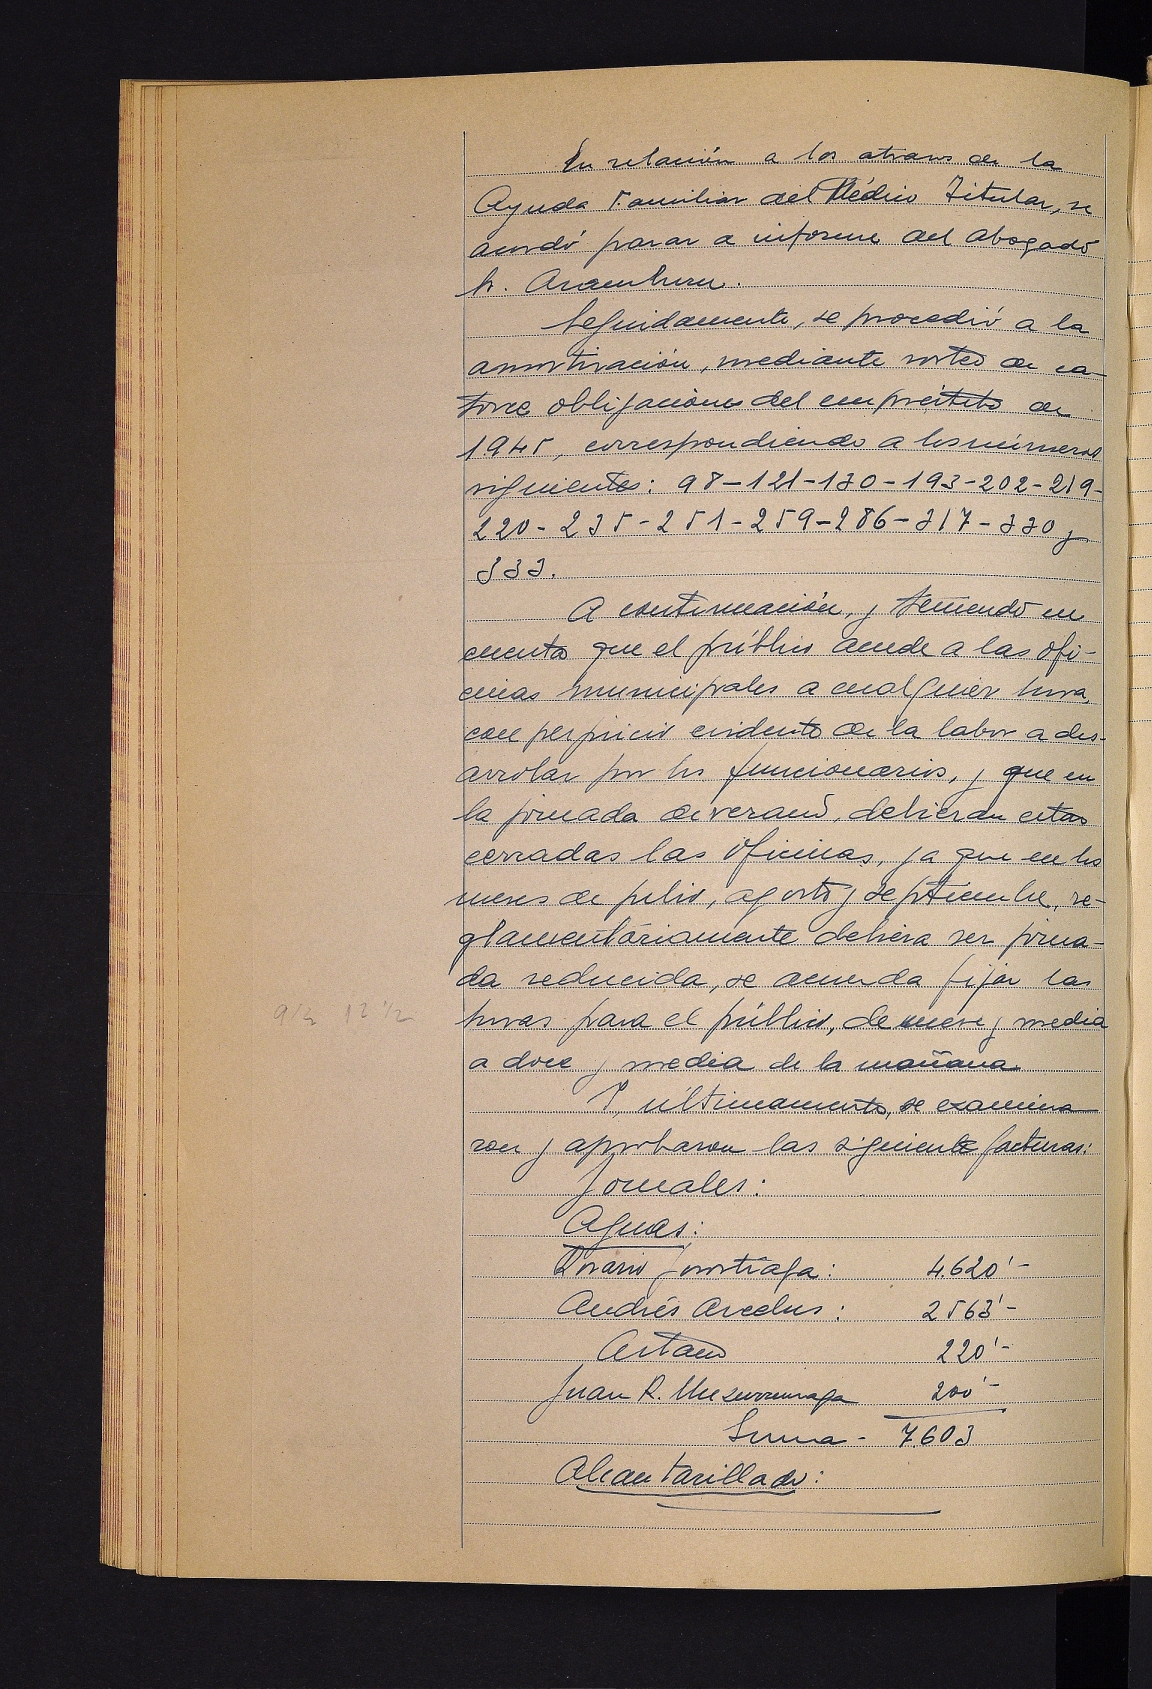 En relación a los atrasos de la
Ayuda Familiar del Médico Titular, se
acordó pasar a informe del abogado
Sr. Aramburu.
Seguidamente, se procedió a la
amortización, mediante sorteo de ca-
torce obligaciones del empréstito de
1945, correspondiendo a los números
siguientes: 98-121-130-193-202-219-
220-235-251-259-286-317-330 y
333.
A continuación, y teniendo en
cuenta que el público acude a las ofi-
cinas municipales a cualquier hora,
con perjuicio evidente de la labor a des-
arrollar por los funcionarios, y que en
la jornada de verano, debieran estar
cerradas las oficinas, ya que en los
meses de julio, agosto y septiembre, re-
glamentariamente debiera ser jorna-
da reducida, se acuerda fijar las
9 1/2 12 1/2
horas para el público, de nueve y media
a doce y media de la mañana.
Y, últimamente, se examina-
ron y aprobaron las siguiente facturas:
Jornales:
Aguas:
Rosario Gorostiaga: 4.620'-
Andrés Arcelus: 2563'-
Artano 220'-
Juan R. 200'-
Suma - 7.603
Alcantarillado: